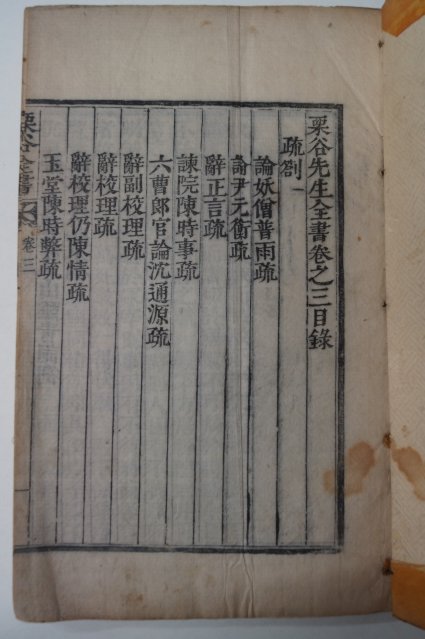 栗谷先生全書卷之三目錄
疏劄一
論妖僧普雨疏
論尹元衡疏
辭正言疏
諫院陳時事疏
六曹郎官論沈通源疏
辭副校理疏
辭校理疏
辭校理仍陳情疏
玉堂陳時弊疏
栗谷全書 卷三